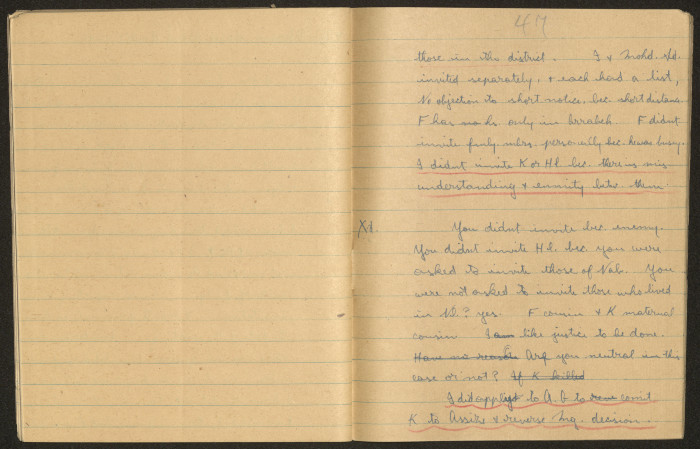 47
those in the district. I & Mohd. s/d.
invited separately, & each had a list,
No objection to short notice bec. short distance
F has nads. only in Arrabeh. F didn't
invite family mbrs. personally bec. he was busy.
I didn't invite K or Hl. bec. there is mis-
understanding & enmity betw. them.
XI.
You didn't invite bec. enemy.
You didn't invite Hl. bec. you were
asked to invite those of Nab. You
were not asked to invite those who lived
in ? yes. F cousin & K maternal
cousin. I am like justice to be done.
Have no reason Are you neutral in this
case or not? If K killed
I did apply to A.G to comit
K to Assize & reverse Mg. decision.